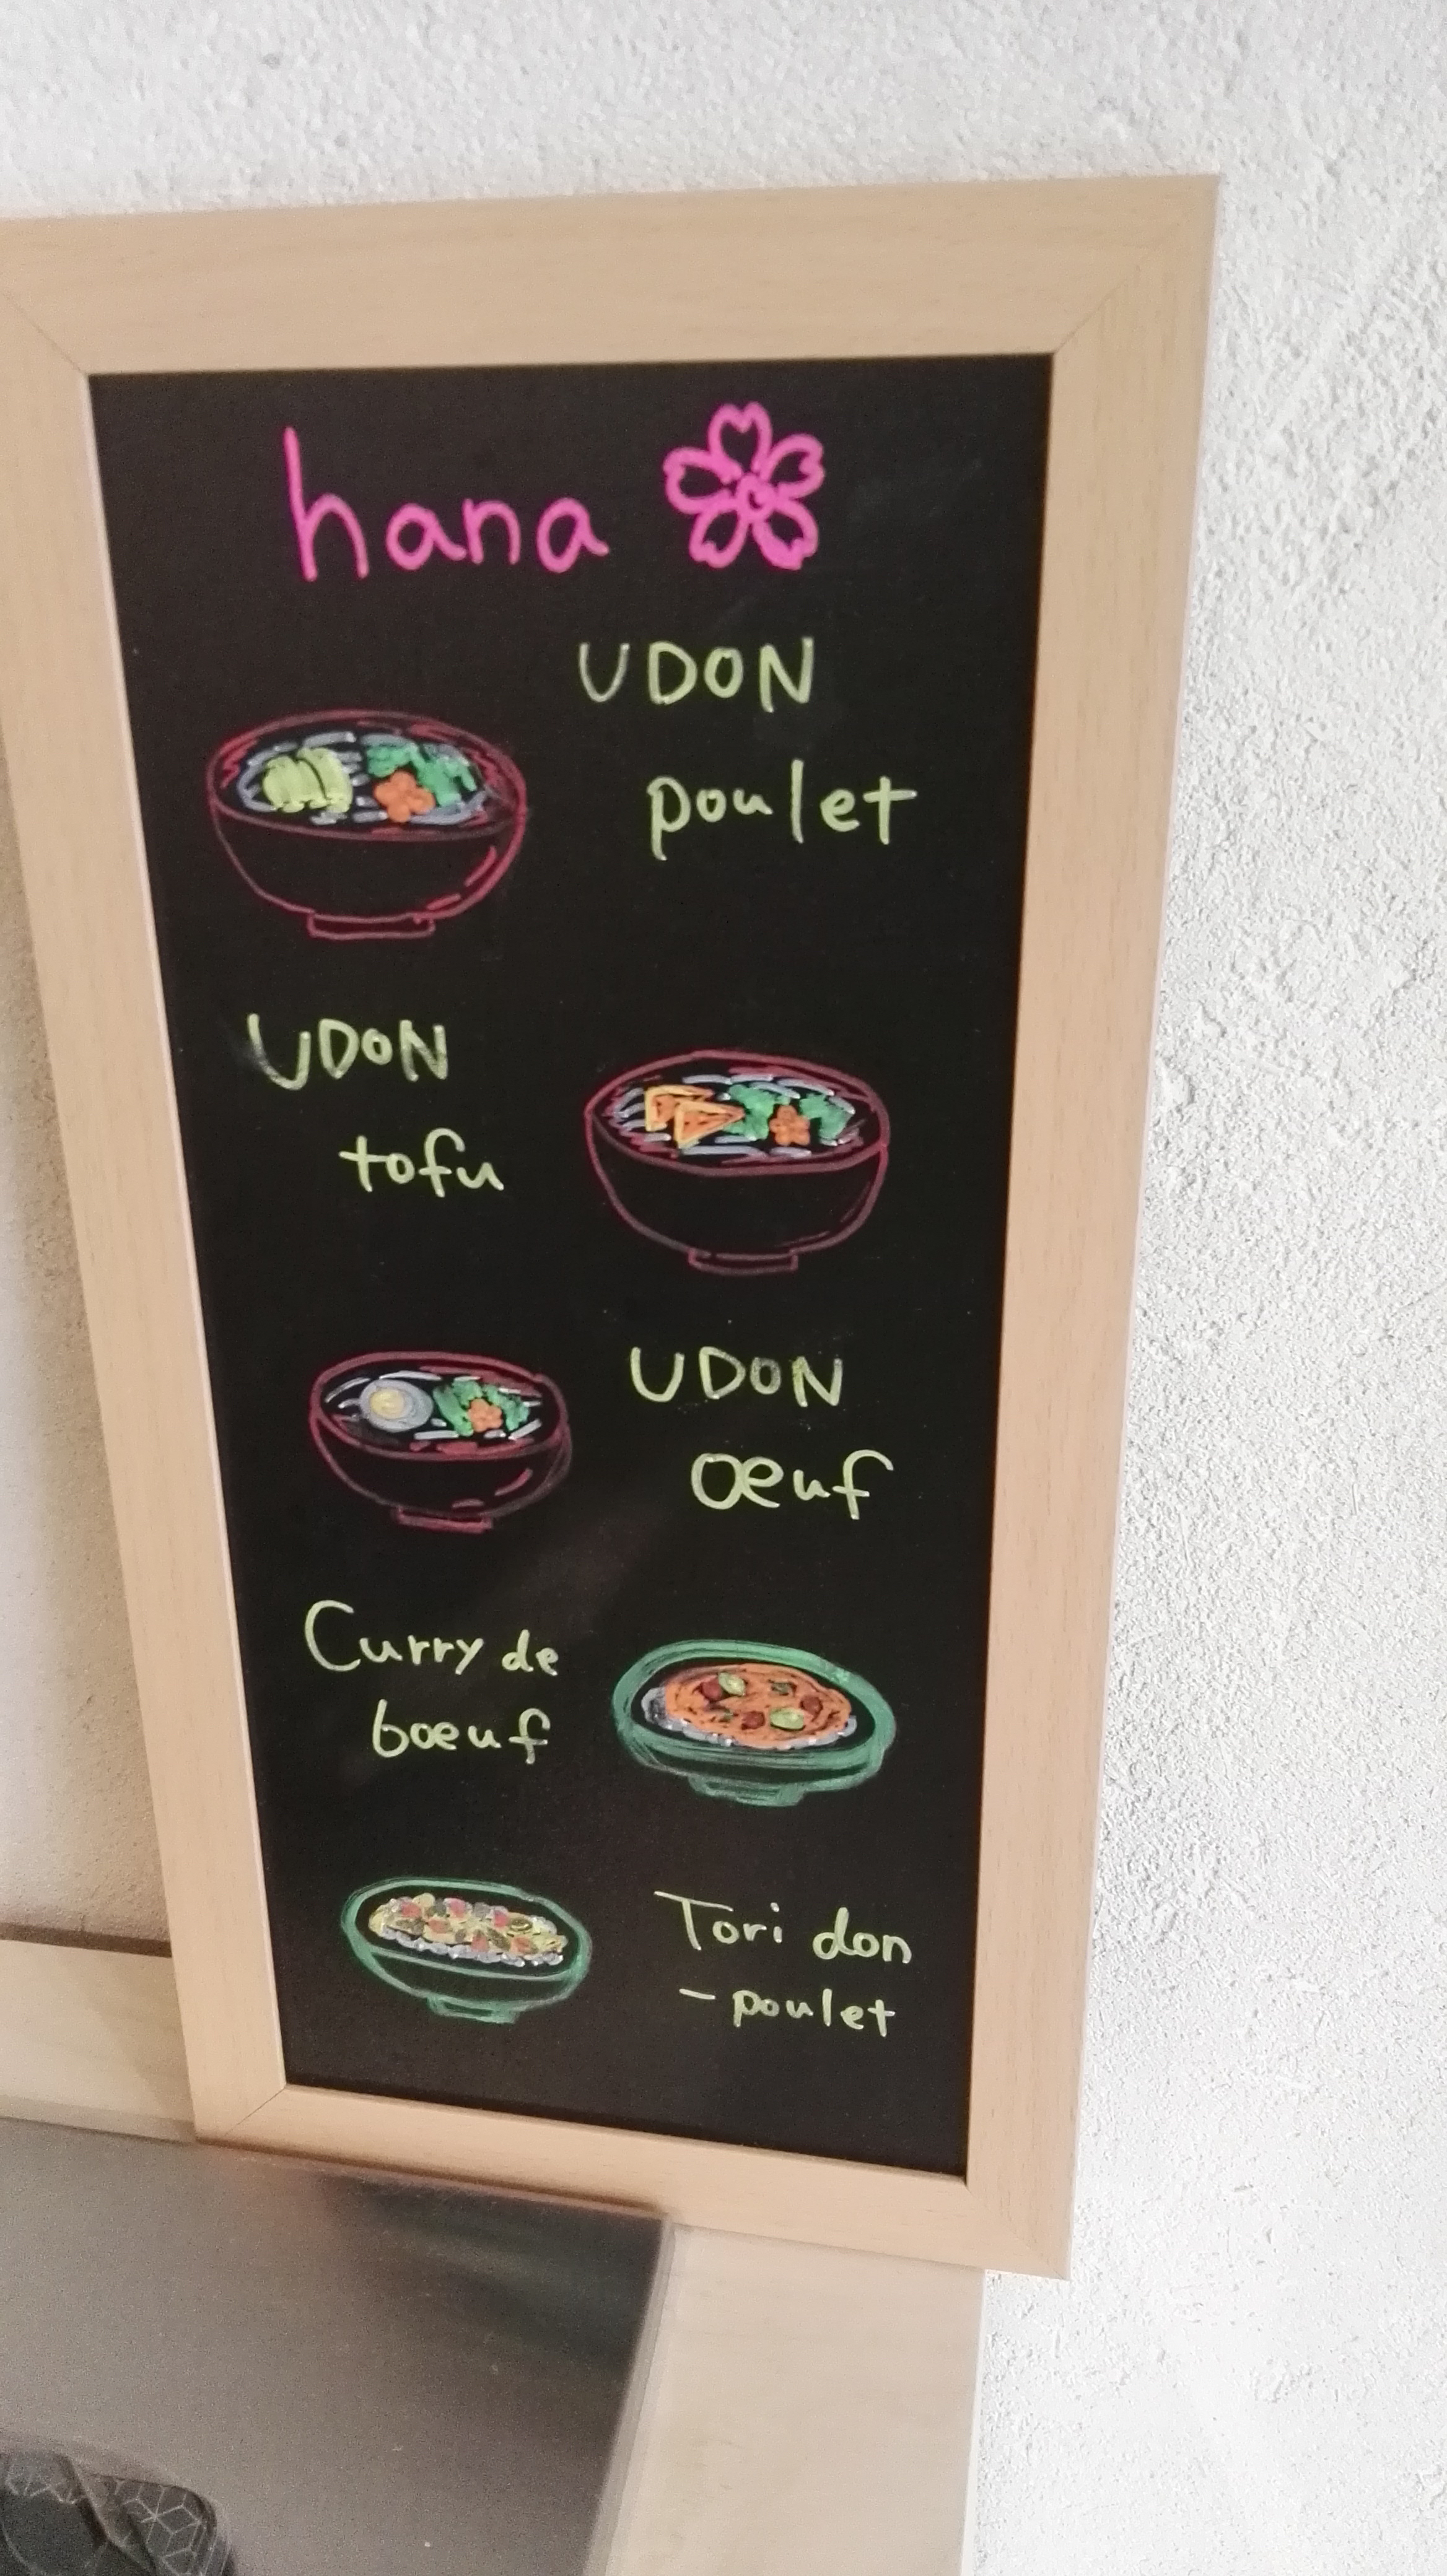 hana
UDON
poulet
UDON
tofu
UDON
œuf
Curry de
bœuf
Tori don
- poulet